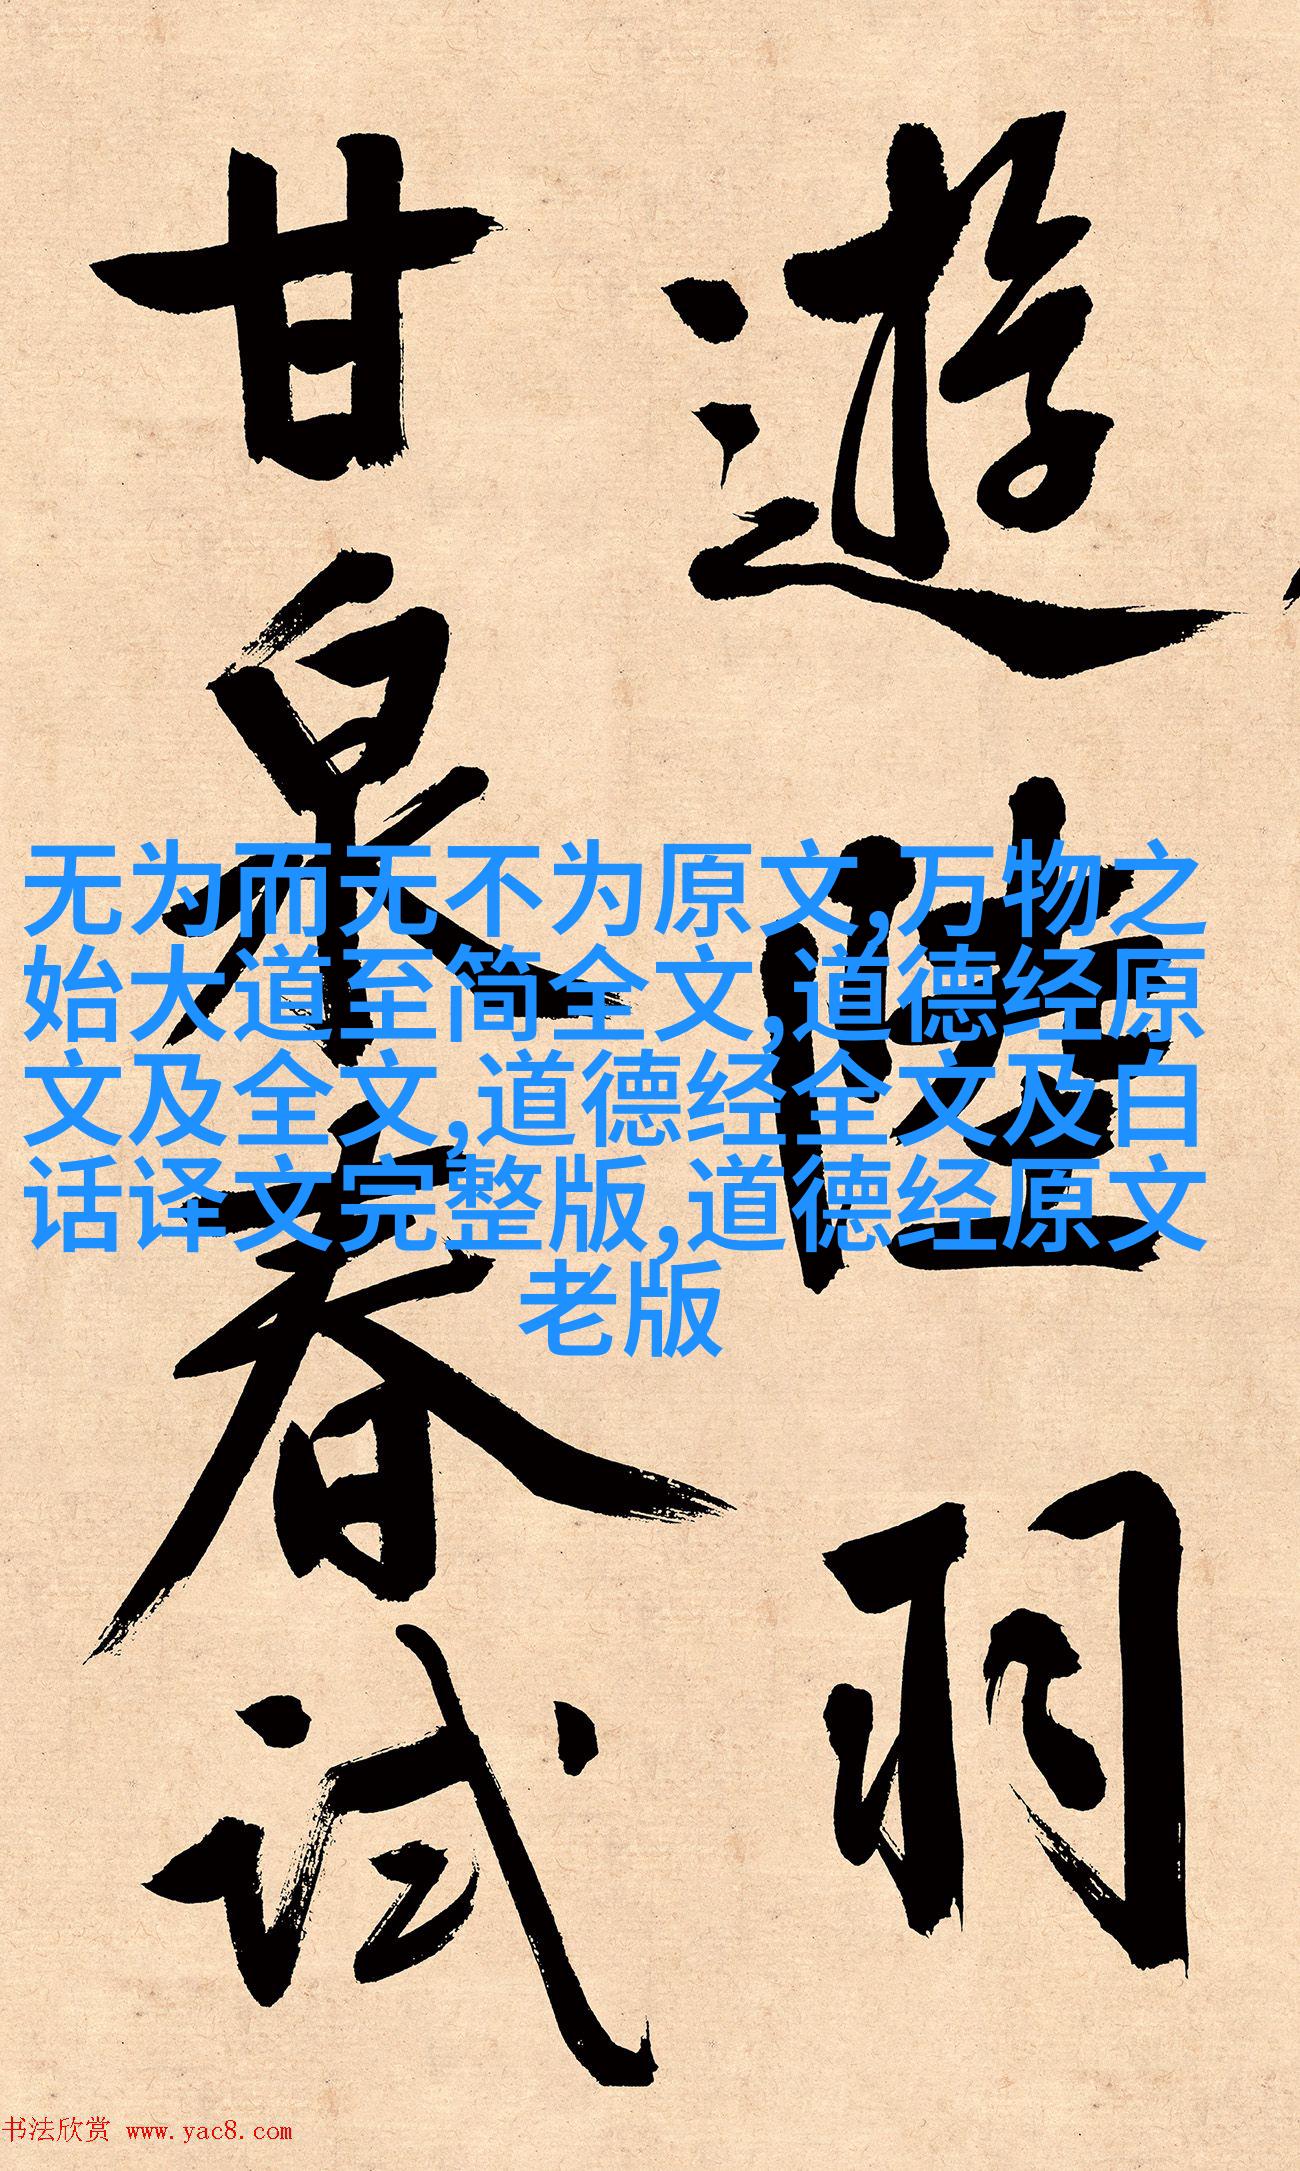 遊陸羽
甘泉春試
无为而无不为原文,万物之
始大道至简全文,道德经原
文及全文,道德经全文及白
话译文完整版,道德经原文
老版
书法欣赏 www.yac8.com